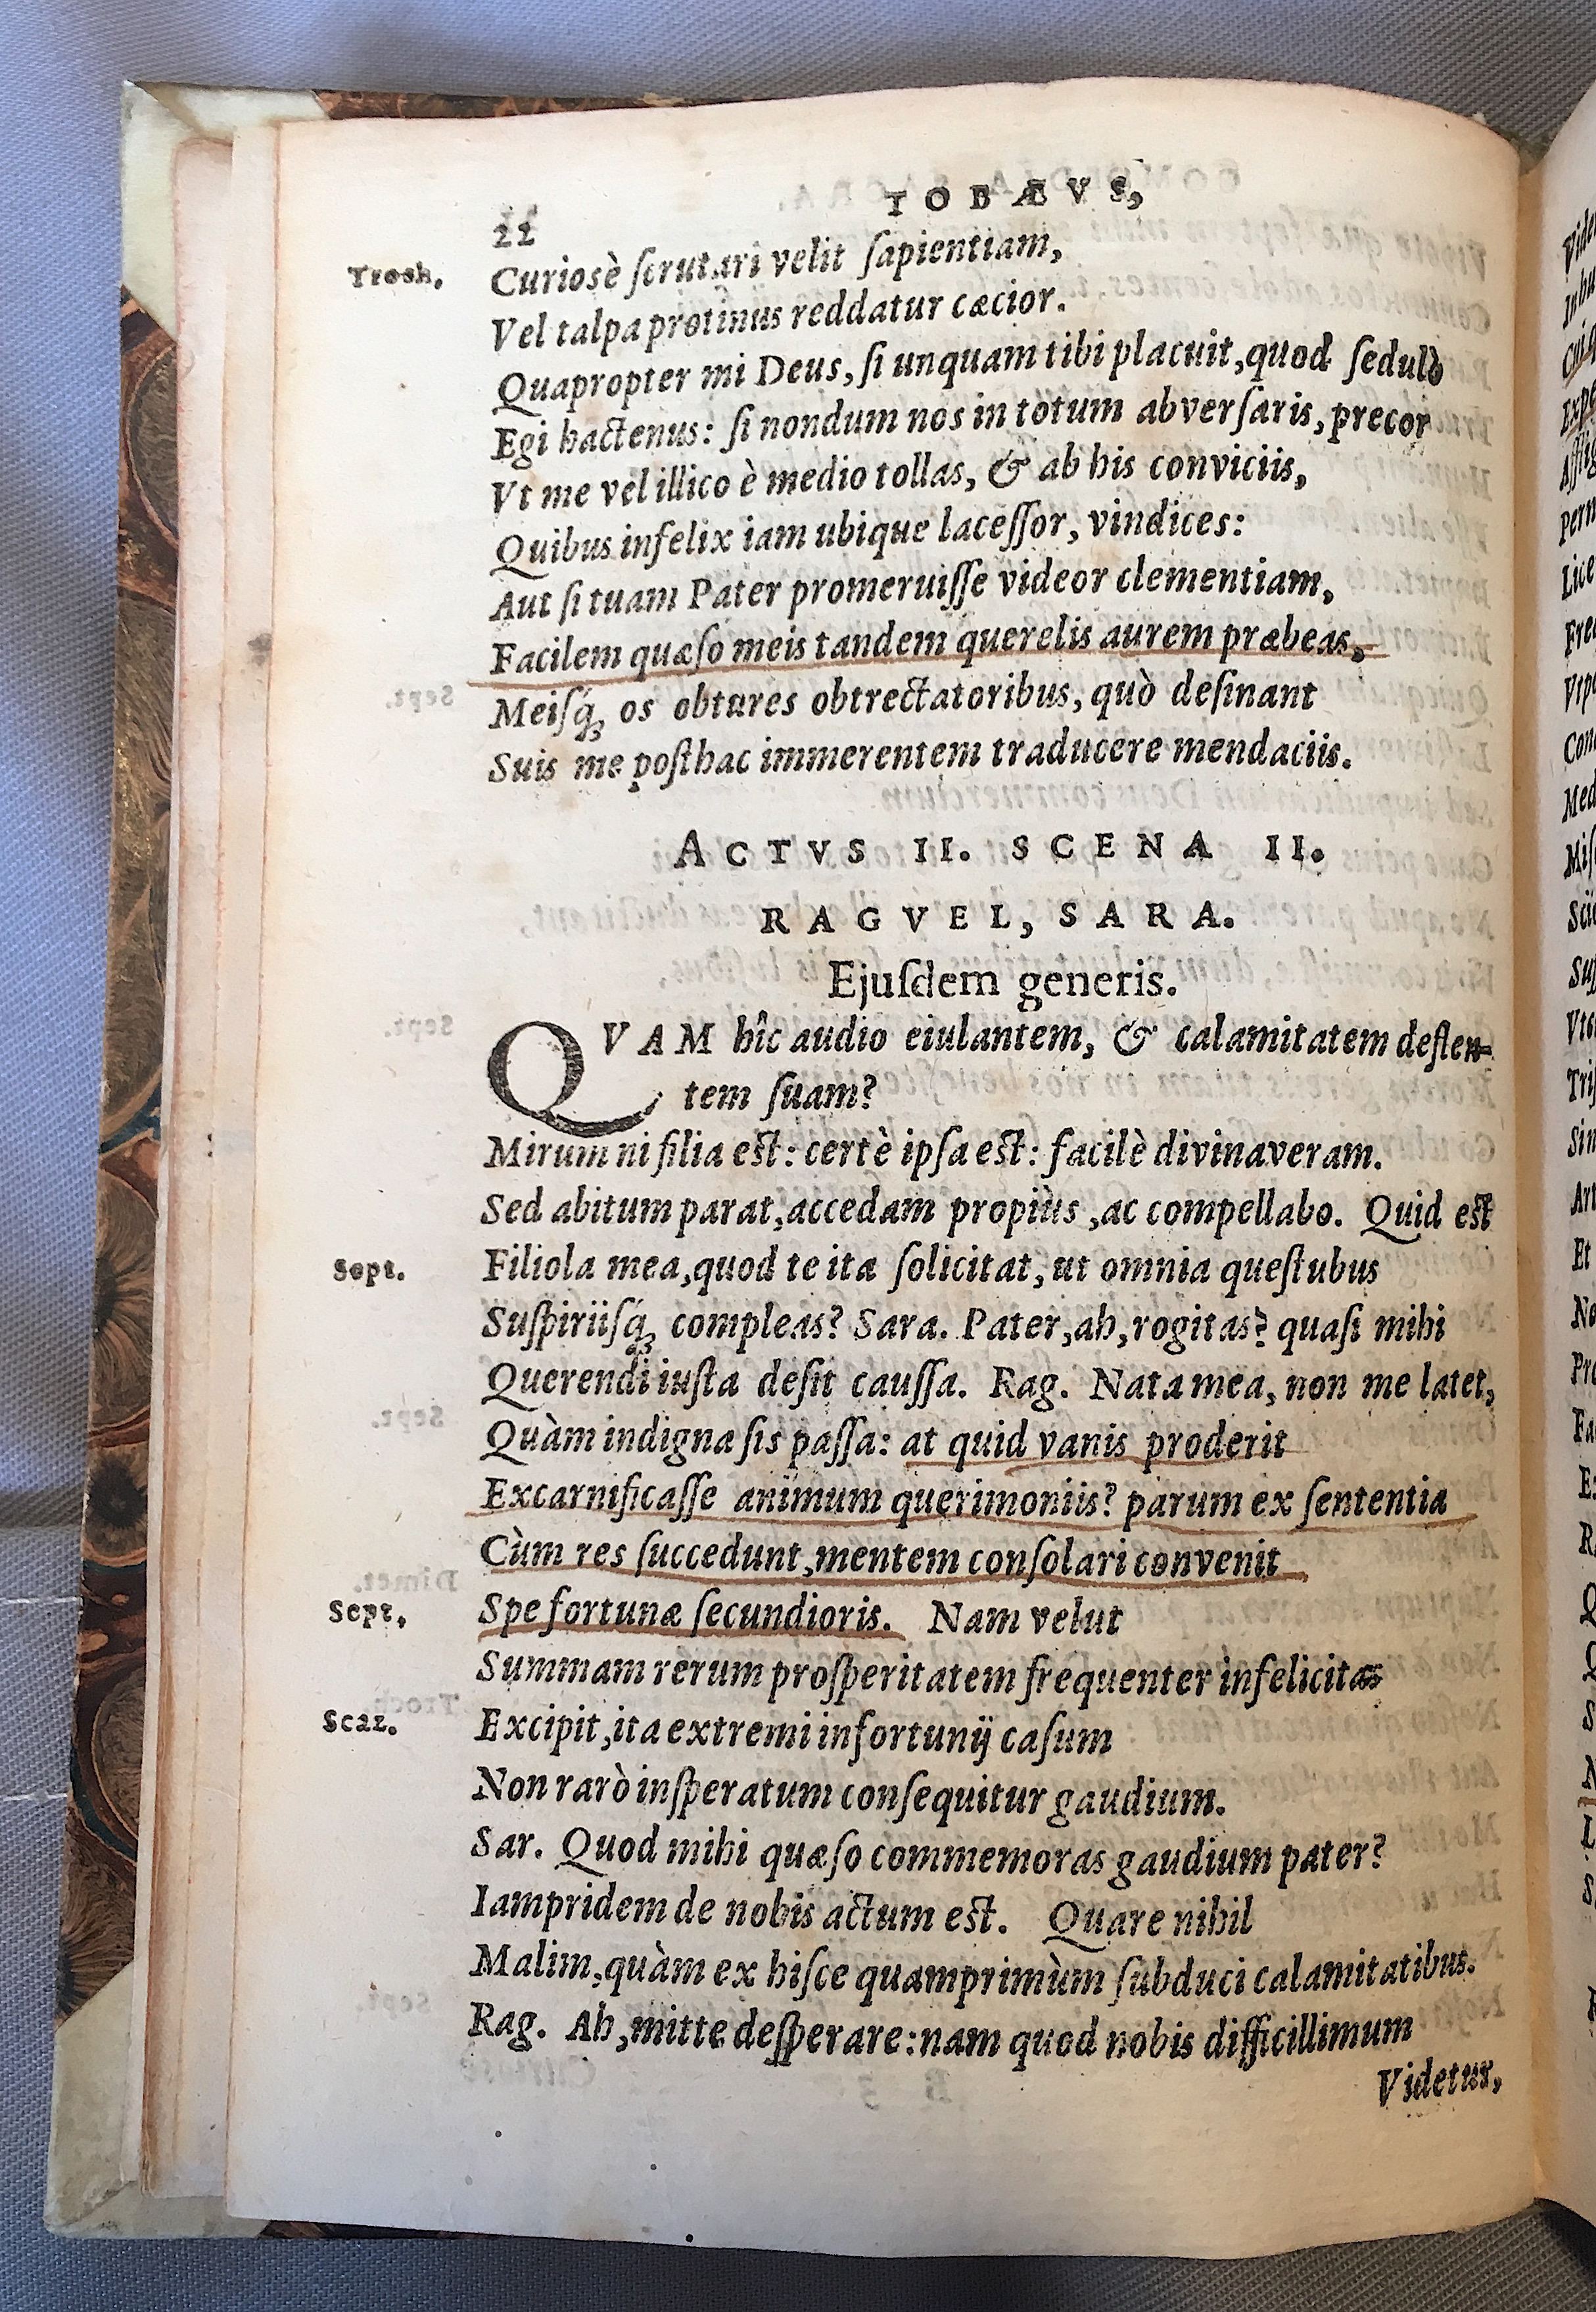 TOBÆVS,
22
Troch. Curiosè ſcrutari velit ſapientiam,
Vel talpa protinus reddatur cæcior.
Quapropter mi Deus, ſi unquam tibi placuit, quod ſedulò
Egi hactenus: ſi nondum nos in totum abverſaris, precor
Vt me vel illico è medio tollas, & ab his conviciis,
Quibus infelix iam ubique laceſſor, vindices:
Aut ſi tuam Pater promeruiſſe videor clementiam,
Facilem quæſo meis tandem querelis aurem præbeas,
Meiſq́; os obtures obtrectatoribus, quò deſinant
Suis me poſthac immerentem traducere mendaciis.
ACTVS II. SCENA II.
RAGVEL, SARA.
Ejuſdem generis.
QVAM hîc audio eiulantem, & calamitatem deflen-
tem ſuam?
Mirum ni filia est: certè ipſa est: facilè divinaveram.
Sed abitum parat, accedam propiùs, ac compellabo. Quid est
Sept. Filiola mea, quod te ita ſolicitat, ut omnia queſtubus
Suſpiriiſq́; compleas? Sara. Pater, ah, rogitas? quaſi mihi
Querendi iuſta deſit cauſſa. Rag. Nata mea, non me latet,
Quàm indigna ſis paſſa: at quid vanis proderit
Excarnificaſſe animum querimoniis? parum ex ſententia
Cùm res ſuccedunt, mentem conſolari convenit
Sept. Spe fortunæ ſecundioris. Nam velut
Summam rerum proſperitatem frequenter infelicitas
Scaz. Excipit, ita extremi infortunij caſum
Non rarò inſperatum conſequitur gaudium.
Sar. Quod mihi quæſo commemoras gaudium pater?
Iampridem de nobis actum est. Quare nihil
Malim, quàm ex hiſce quamprimùm ſubduci calamitatibus.
Rag. Ah, mitte deſperare: nam quod nobis difficillimum
Videtur,